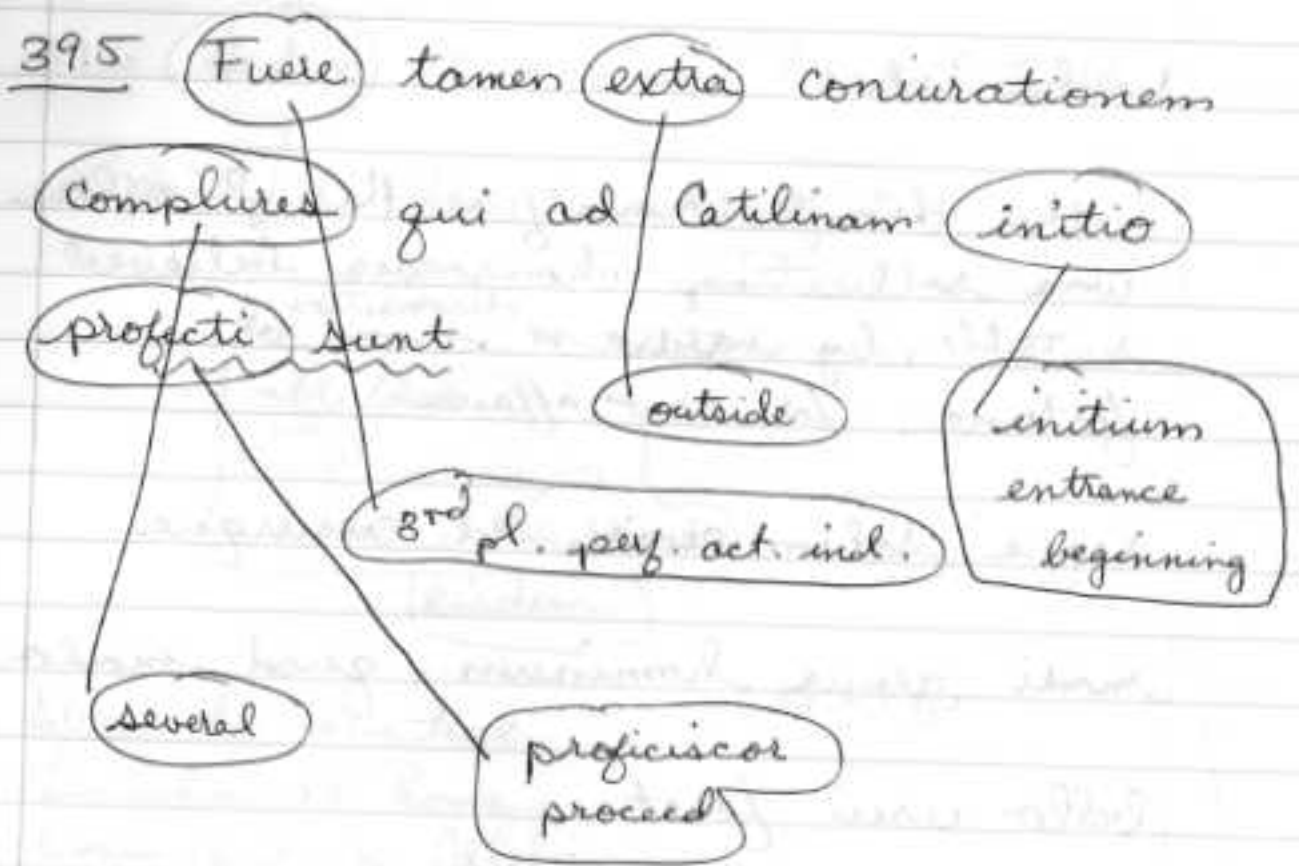 39.5 Fuere tamen extra coniurationem
complures qui ad Catilinam initio
profecti sunt.
outside
initium
entrance
beginning
3rd pl. perf. act. ind.
several
proficiscor
proceed